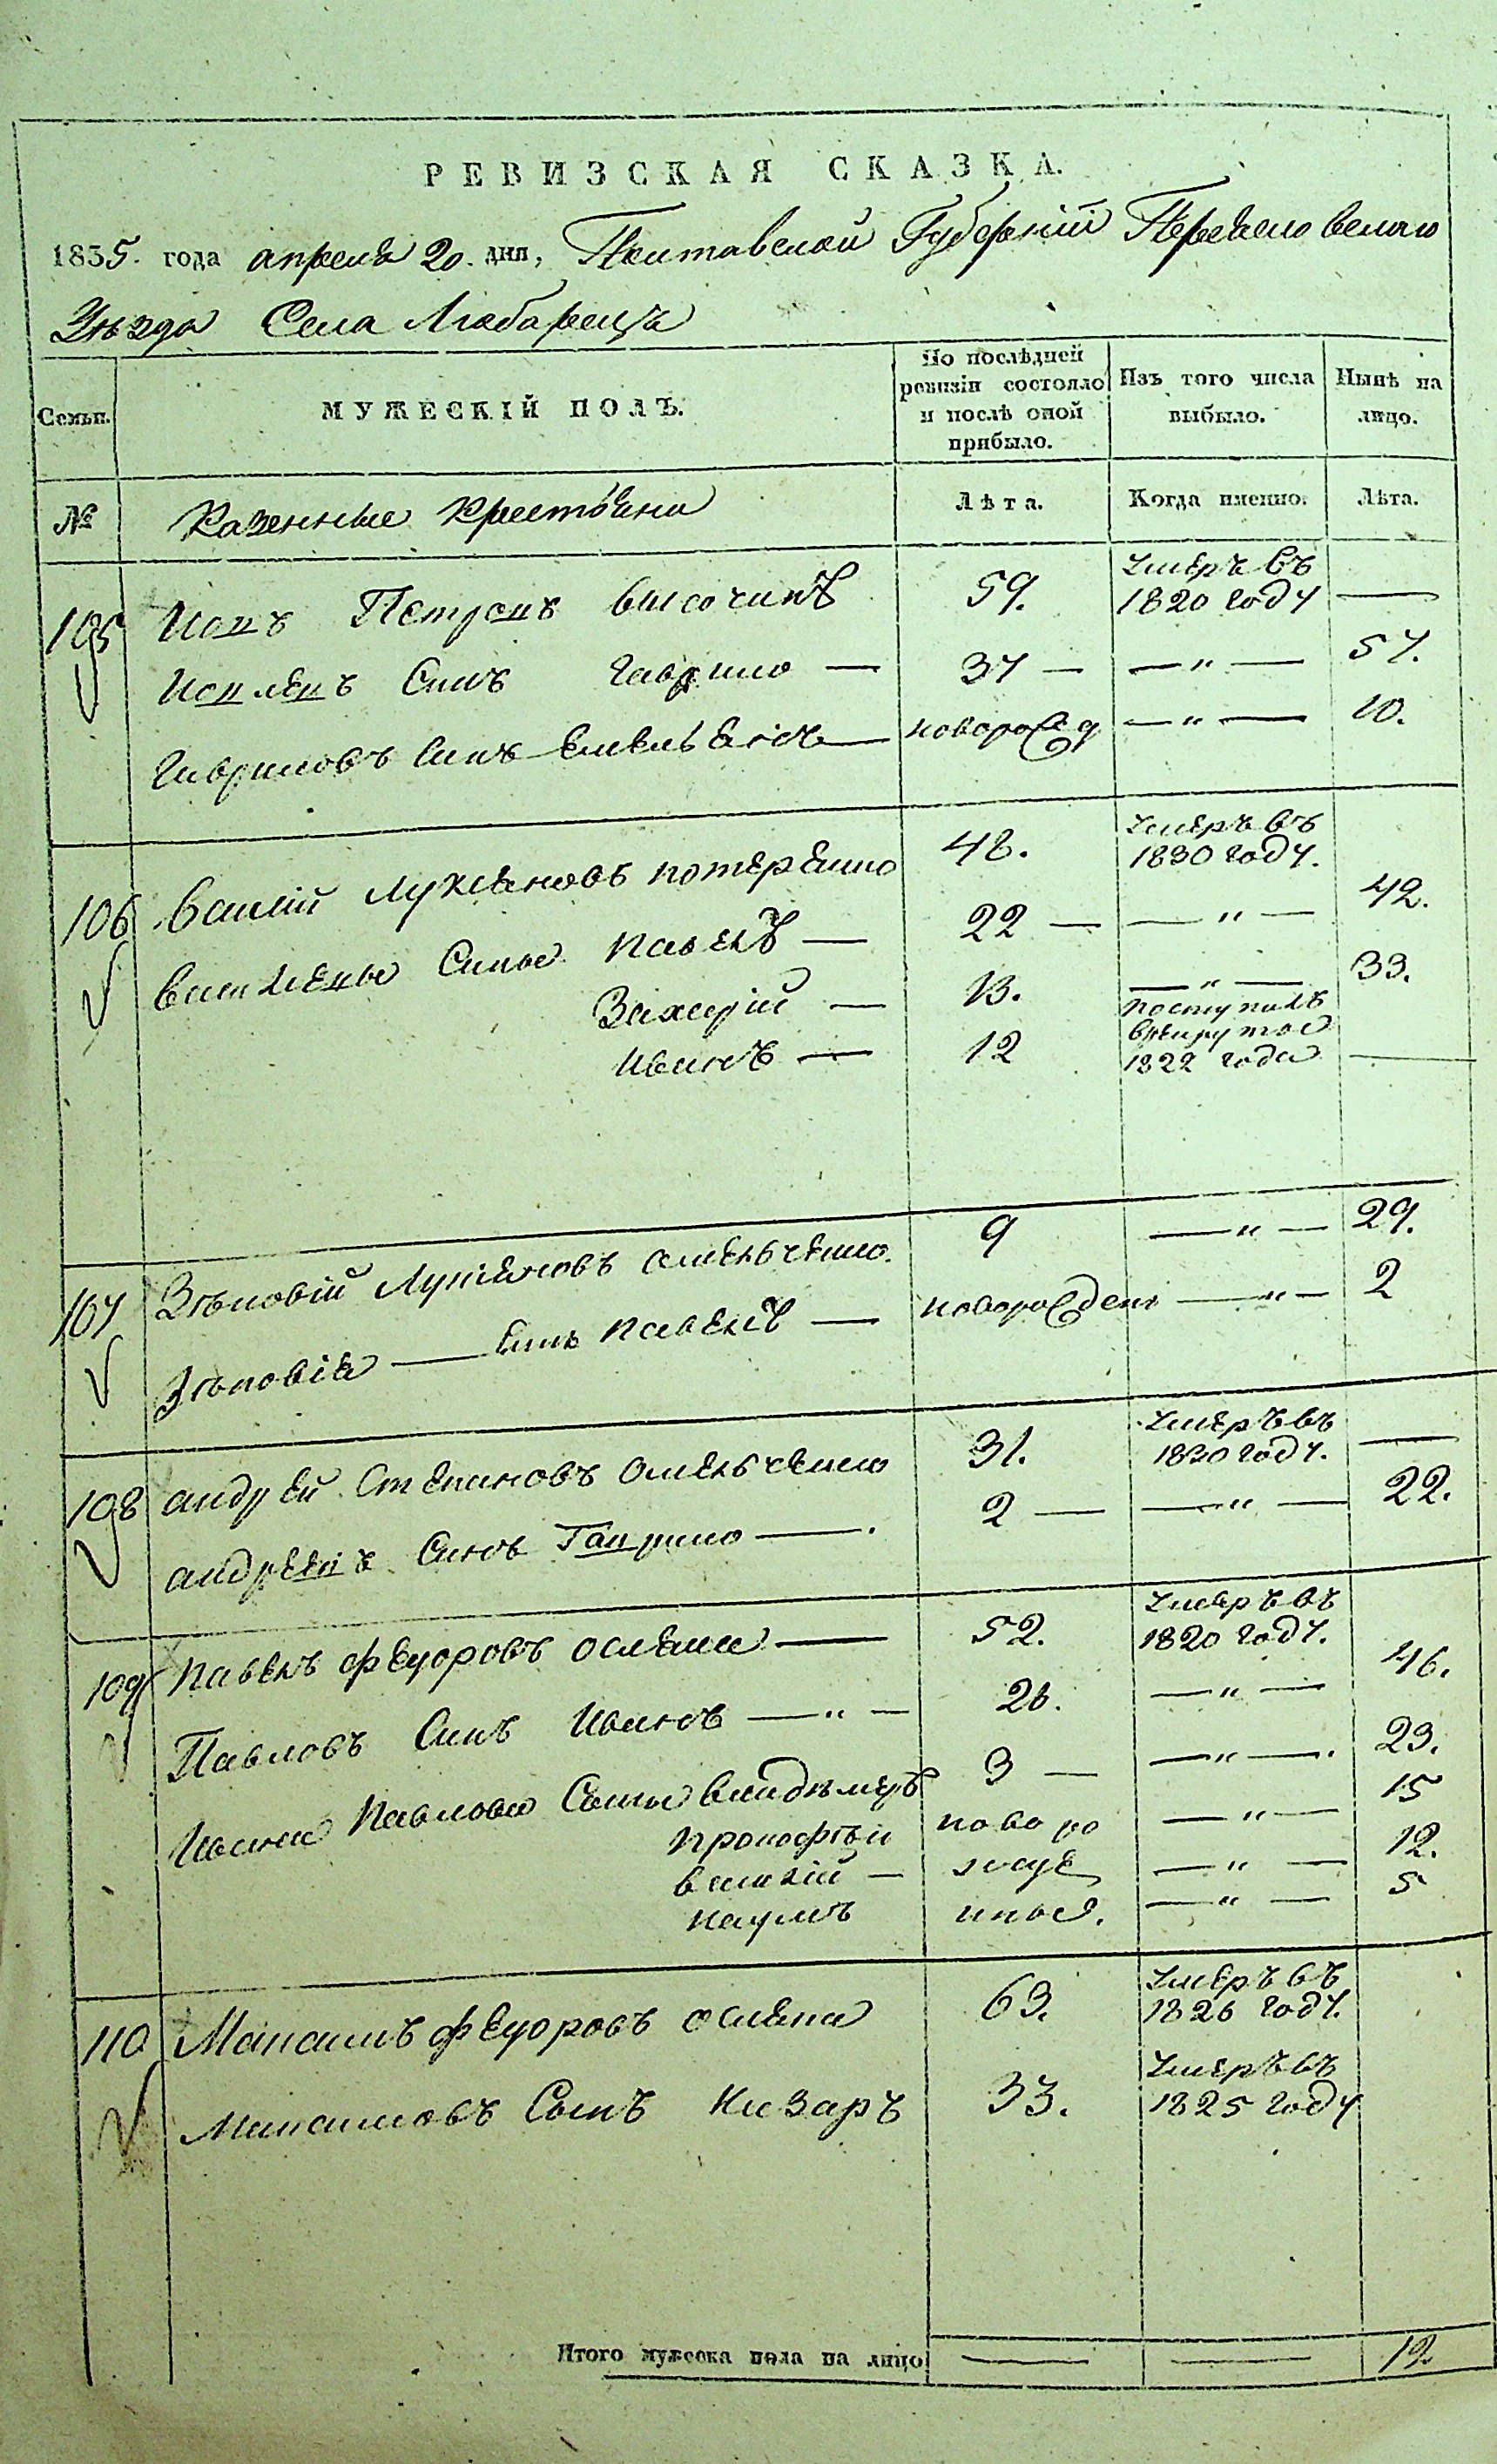 РЕВИЗСКАЯ СКАЗКА.
1835. года апреля 20. дня, Полтавской Губерніи Переяславскаго
Уѣзда Села Любарецъ
Семьи.
МУЖЕСКІЙ ПОЛЪ.
По послѣдней ревизіи состояло и послѣ оной прибыло.
Изъ того числа выбыло.
Нынѣ на лицо.
№ Казенные Крестьяне Лѣта. Когда именно. Лѣта.
105 Петровъ 59. Умеръ въ 1820 году —
Сынъ Гаврило — 37 — — " — 57.
Гавриловъ Сынъ — новорожд — " — 10.
106 Василій Лукьяновъ 48. Умеръ въ 1830 году.
Сынъя Павелъ — 22 — — " — 42.
Захарій — 13. — " — 33.
Иванъ — 12 Поступилъ в рекруты 1822 года —
107 Зѣновій Лукьяновъ Омельченко. 9 — " — 29.
Зѣновія — Сынъ Павелъ — новорожден — " — 2
108 Андрей Степановъ Омельченко 31. Умеръ въ 1830 году. —
Андреевъ Сынъ Гаврило —. 2 — — " — 22.
109 Павелъ Феодоровъ Ослела — 52. Умеръ въ 1820 году.
Павловъ Сынъ Иванъ — " — 26. — " — 46.
Ивана Павлова Сыны 3 — — " —. 23.
Прокофтѣй новоро — " — 15
Василій — жде — " — 12.
Наумъ нные. — " — 5
110 Феодоровъ 63. Умеръ въ 1826 году.
Сынъ Назаръ 33. Умеръ въ 1825 году
Итого мужеска пола на лицо — — 12.